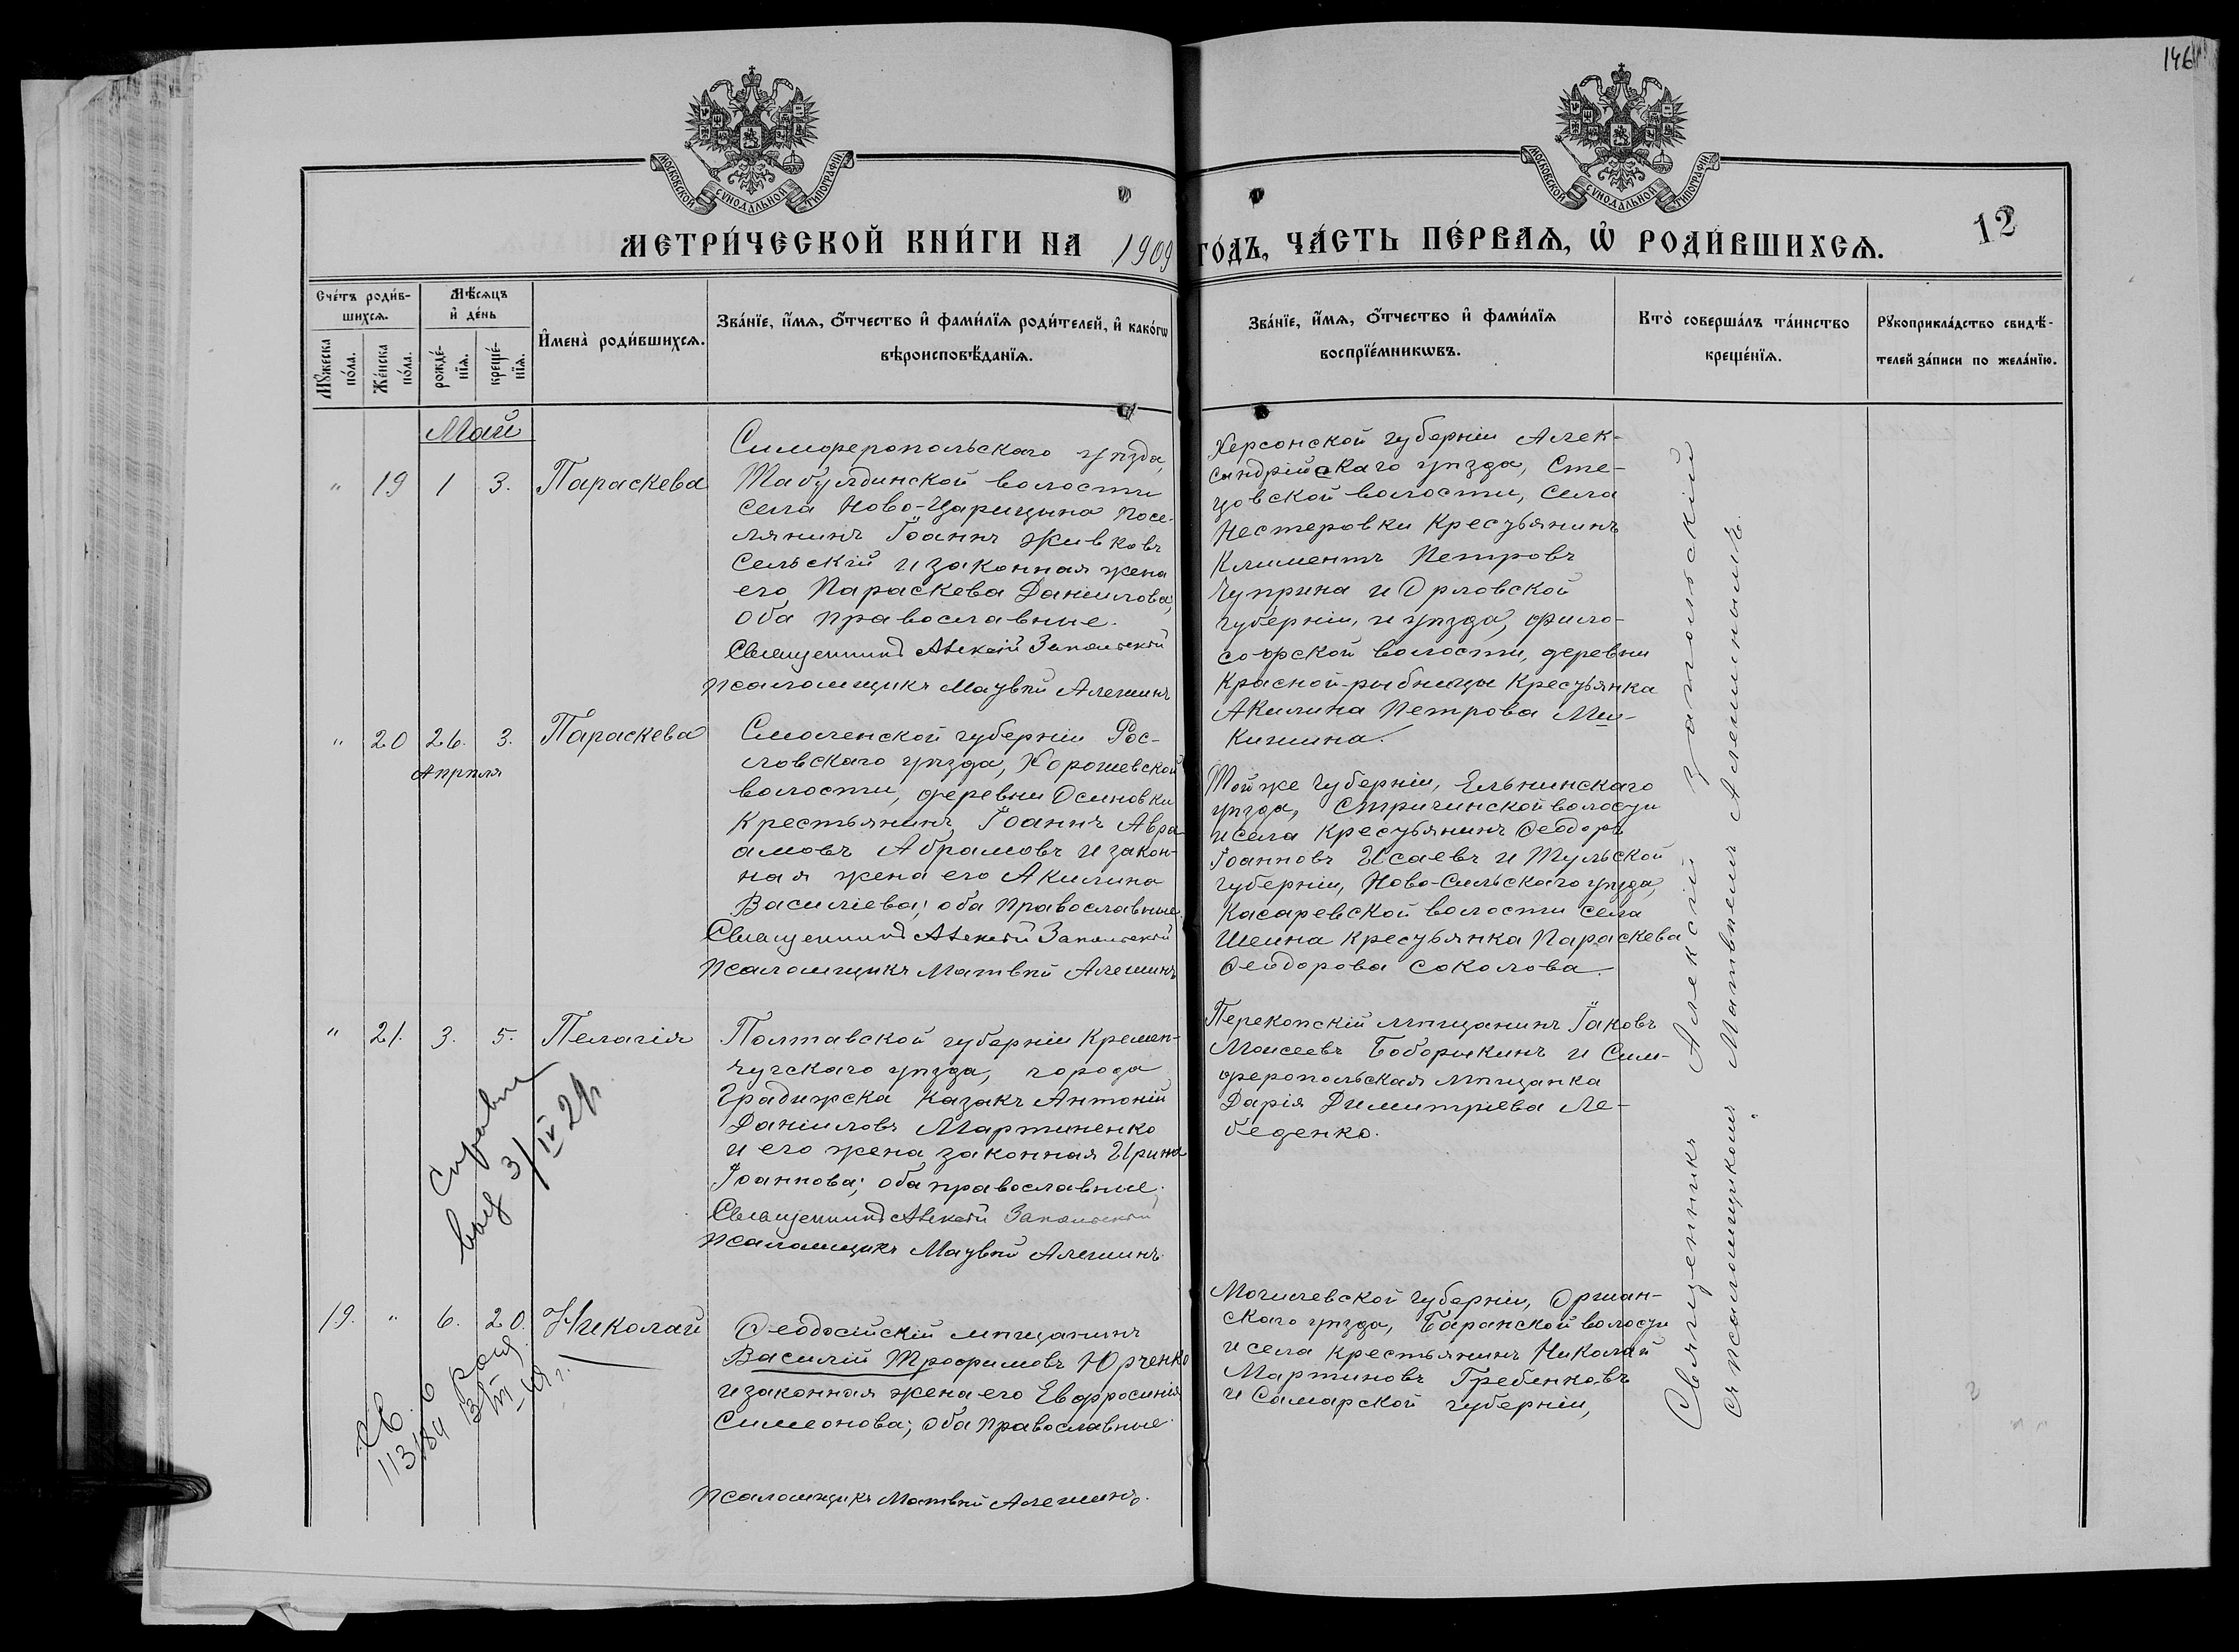 146
МОСКОВСКОЙ СѴНОДАЛЬНОЙ ТИПОГРАФІИ
МОСКОВСКОЙ СѴНОДАЛЬНОЙ ТИПОГРАФІИ
МЕТРИ́ЧЕСКОЙ КНИ́ГИ НА 1909 ГО́ДЪ, ЧА́СТЬ ПЕ́РВАѦ, Ѡ҆ РОДИ́ВШИХСѦ.
12
Сче́тъ роди́в-
шихсѧ.
Мꙋ́жеска
по́ла.
Же́нска
по́ла.
Мѣ́сѧцъ
и҆ де́нь
рожде́-
нїѧ.
креще́-
нїѧ.
И҆мена̀ роди́вшихсѧ.
Зва́нїе, и҆́мѧ, ѻ҆́тчество и҆ фами́лїѧ роди́телей, и҆ како́гѡ
вѣроисповѣ́данїѧ.
Зва́нїе, и҆́мѧ, ѻ҆́тчество и҆ фами́лїѧ
воспрїе́мникѡвъ.
Кто̀ соверша́лъ та́инство
креще́нїѧ.
Рꙋкоприкла́дство свидѣ́-
телей за́писи по жела́нїю.
Май
" 19 1 3. Параскева
Симферопольскаго уѣзда,
Табулдинской волости
села Ново-Царицына посе-
лянинъ Іоаннъ Живковъ
Сельскій и законная жена
его Параскева Даниилова,
оба православные.
Священникъ Алексій Запольскій
Псаломщикъ Матвѣй Алешинъ
Херсонской губерніи Алек-
сандрійскаго уѣзда, Сте-
цовской волости, села
Нестеровки крестьянинъ
Климентъ Петровъ
Чуприна и Орловской
губерніи, и уѣзда, Фило-
софской волости, деревни
Красной-рыбницы крестьянка
Акилина Петрова Ми-
кишина.
" 20 26. 3. Параскева
Апрѣля
Смоленской губерніи Рос-
ловскаго уѣзда, Хорошевской
волости, деревни Осиновки
крестьянинъ Іоаннъ Авра-
амовъ Абрамовъ и закон-
ная жена его Акилина
Василіева; оба православные.
Священникъ Алексій Запольскій
Псаломщикъ Матвѣй Алешинъ
Той же губерніи, Ельнинскаго
уѣзда, Стригинской волости
и села крестьянинъ Ѳеодоръ
Іоанновъ Исаевъ и Тульской
губерніи, Ново-Сильскаго уѣзда,
Касаревской волости села
Шеина крестьянка Параскева
Ѳеодорова Соколова.
" 21. 3. 5. Пелагія
Полтавской губерніи Кремен-
чугскаго уѣзда, города
Градижска казакъ Антоній
Данииловъ Мартиненко
и его жена законная Ирина
Іоаннова; оба православные;
Священникъ Алексій Запольскій
Псаломщикъ Матвѣй Алешинъ.
Перекопскій мѣщанинъ Іаковъ
Моисеевъ Боборыкинъ и Сим-
феропольская мѣщанка
Дарія Димитріева Ле-
беденко.
3/IV 29
19. " 6. 20. Николай
Ѳеодосійскій мѣщанинъ
Василій Трофимовъ Юрченко
и законная жена его Евфросинія
Симеонова; оба православные.
Псаломщикъ Матвѣй Алешинъ.
Могилевской губерніи, Оршан-
скаго уѣзда, Баранской волости
и села крестьянинъ Николай
Мартиновъ Гребенковъ
и Самарской губерніи,
Священникъ Алексій Запольскій
съ псаломщикомъ Матвѣемъ Алешинымъ.